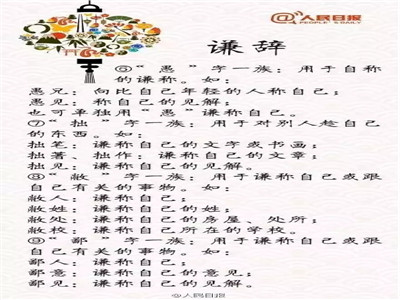 @人民日报
PEOPLE'S DAILY
谦辞
⑥“愚”字一族：用于自称
的谦称。如：
愚兄：向比自己年轻的人称自己；
愚见：称自己的见解；
也可单独用“愚”谦称自己。
⑦“拙”字一族：用于对别人趁自己
的东西。如：
拙笔：谦称自己的文字或书画；
拙著、拙作：谦称自己的文章；
拙见：谦称自己的见解。
⑧“敝”字一族：用于谦称自己或跟
自己有关的事物。如：
敝人：谦称自己；
敝姓：谦称自己的姓；
敝处：谦称自己的房屋、处所；
敝校：谦称自己所在的学校。
⑨“鄙”字一族：用于谦称自己或跟
自己有关的事物。如：
鄙人：谦称自己；
鄙意：谦称自己的意见；
鄙见：谦称自己的见解。
@人民日报